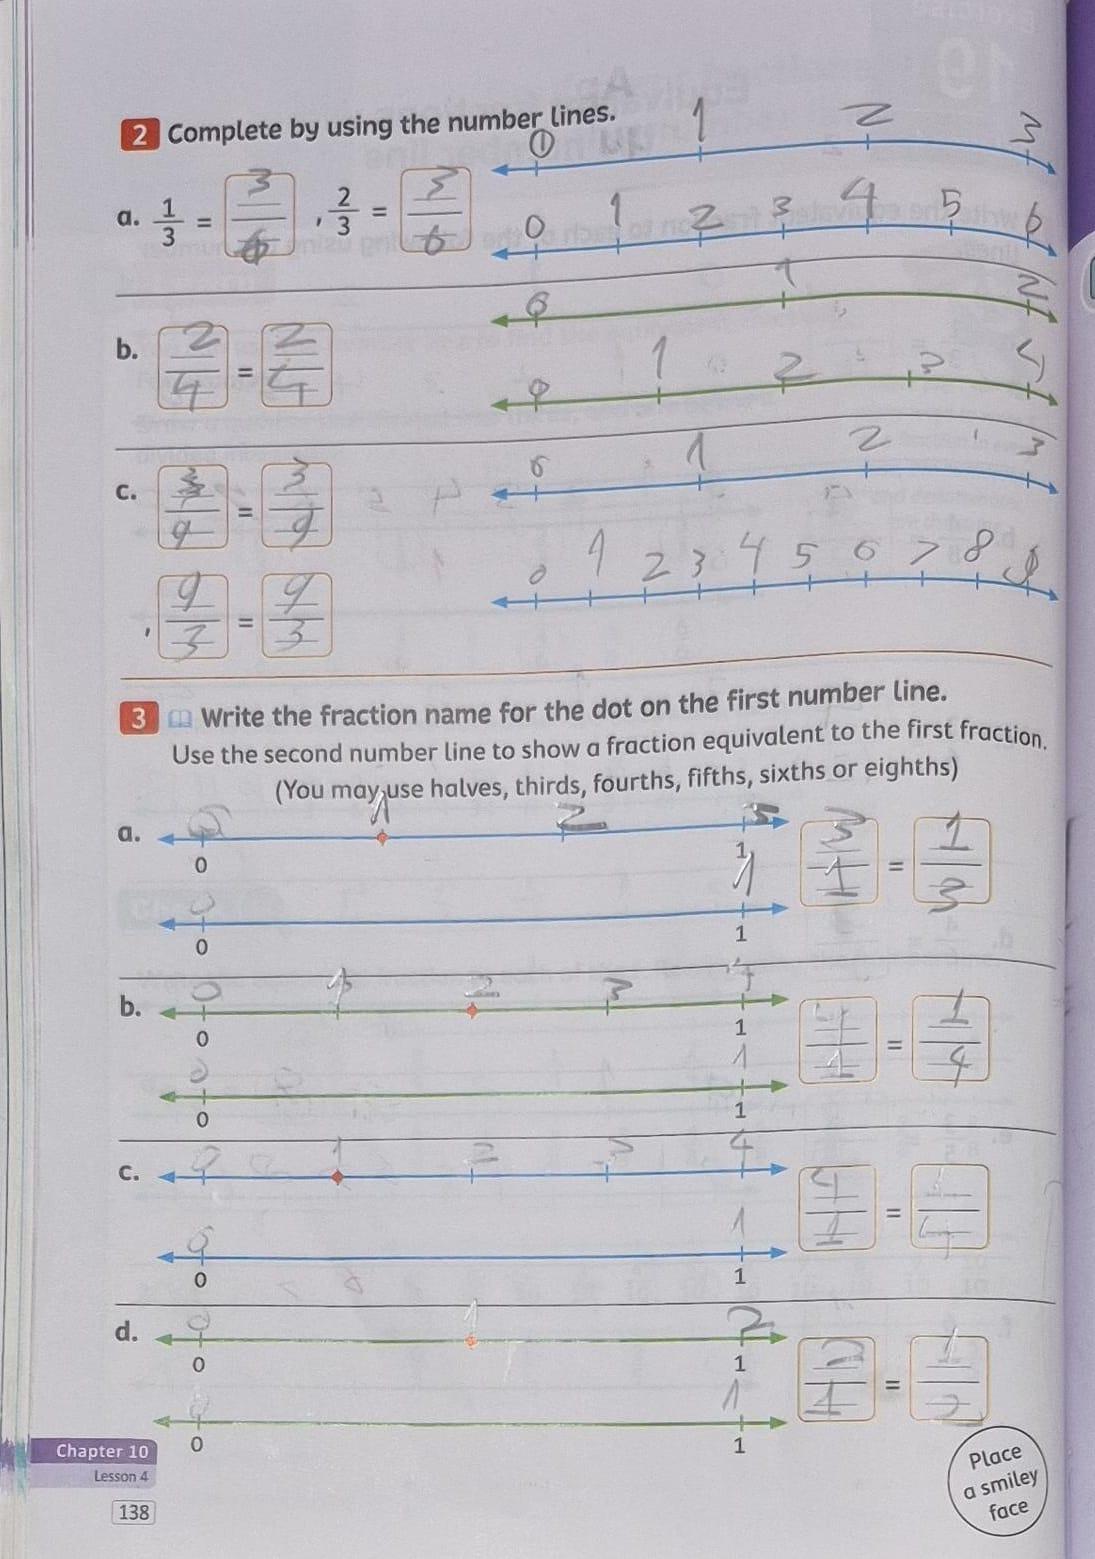 2 Complete by using the number lines.
0 1 2 3
a. 1/3 = 3/6 , 2/3 = 3/6
0 1 2 3 4 5 6
0 1 2
b. 2/4 = 2/4
0 1 2 3 4
0 1 2 3
c. 3/9 = 3/9
0 1 2 3 4 5 6 7 8 9
, 9/3 = 9/3
3 Write the fraction name for the dot on the first number line.
Use the second number line to show a fraction equivalent to the first fraction.
(You may use halves, thirds, fourths, fifths, sixths or eighths)
a. 0 1 2 3
0 1
3/1 = 1/3
0 1
0 1
b. 0 1 2 3 4
0 1
4/1 = 1/4
0 1
0 1
c. 0 1 2 3 4
4/1 = 1/4
0 1
0 1
d. 0 1 2
0 1
2/1 = 1/2
0 1
0 1
Chapter 10
Lesson 4
138
Place
a smiley
face